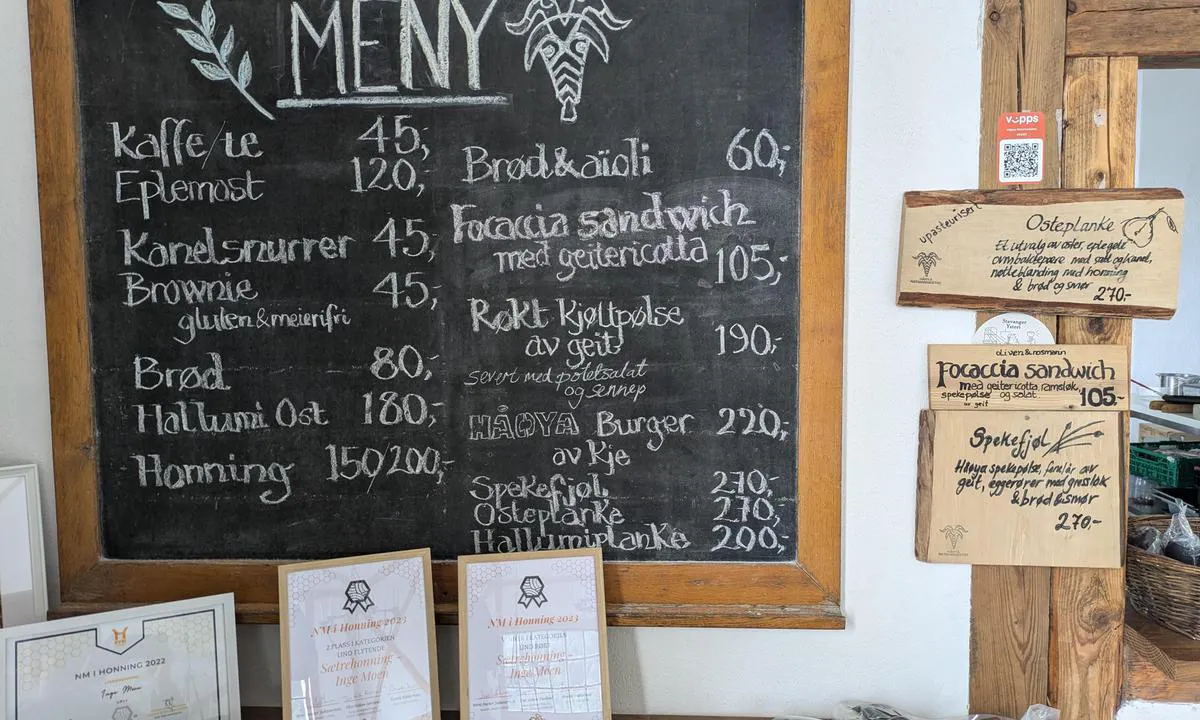 MENY
Kaffe/te 45,-
Eplemost 120,-
Kanelsnurrer 45,-
Brownie 45,-
gluten & meierifri
Brød 80,-
Hallumi Ost 180,-
Honning 150/200,-
Brød & aïoli 60,-
Focaccia sandwich
med geitericotta 105,-
Røkt Kjøttpølse
av geit 190,-
Severt med potetsalat
og sennep
HÅØYA Burger 220,-
av Kje
Spekefjøl 270,-
Osteplanke 270,-
Hallumiplanke 200,-
Vipps
upasteurisert
Osteplanke
Et utvalg av oster, eplegelé
ovnbaktepære med salt og kanel,
nøtteblanding med honning
& brød og smør
270,-
Stavanger
Ysteri
oliven & rosmarin
Focaccia sandwich
med geitericotta, ramsløk,
spekepølse og salat. 105,-
av geit
Spekefjøl
Håøya spekepølse, fenalår av
geit, eggerører med gressløk
& brød & smør
270,-
NM I HONNING 2022
NM i Honning 2023
2.PLASS I KATEGORIEN
UNO FLYTENDE
Sætrehonning -
Inge Moen
NM i Honning 2023
I KATEGORIEN
Sætrehonning -
Inge Moen